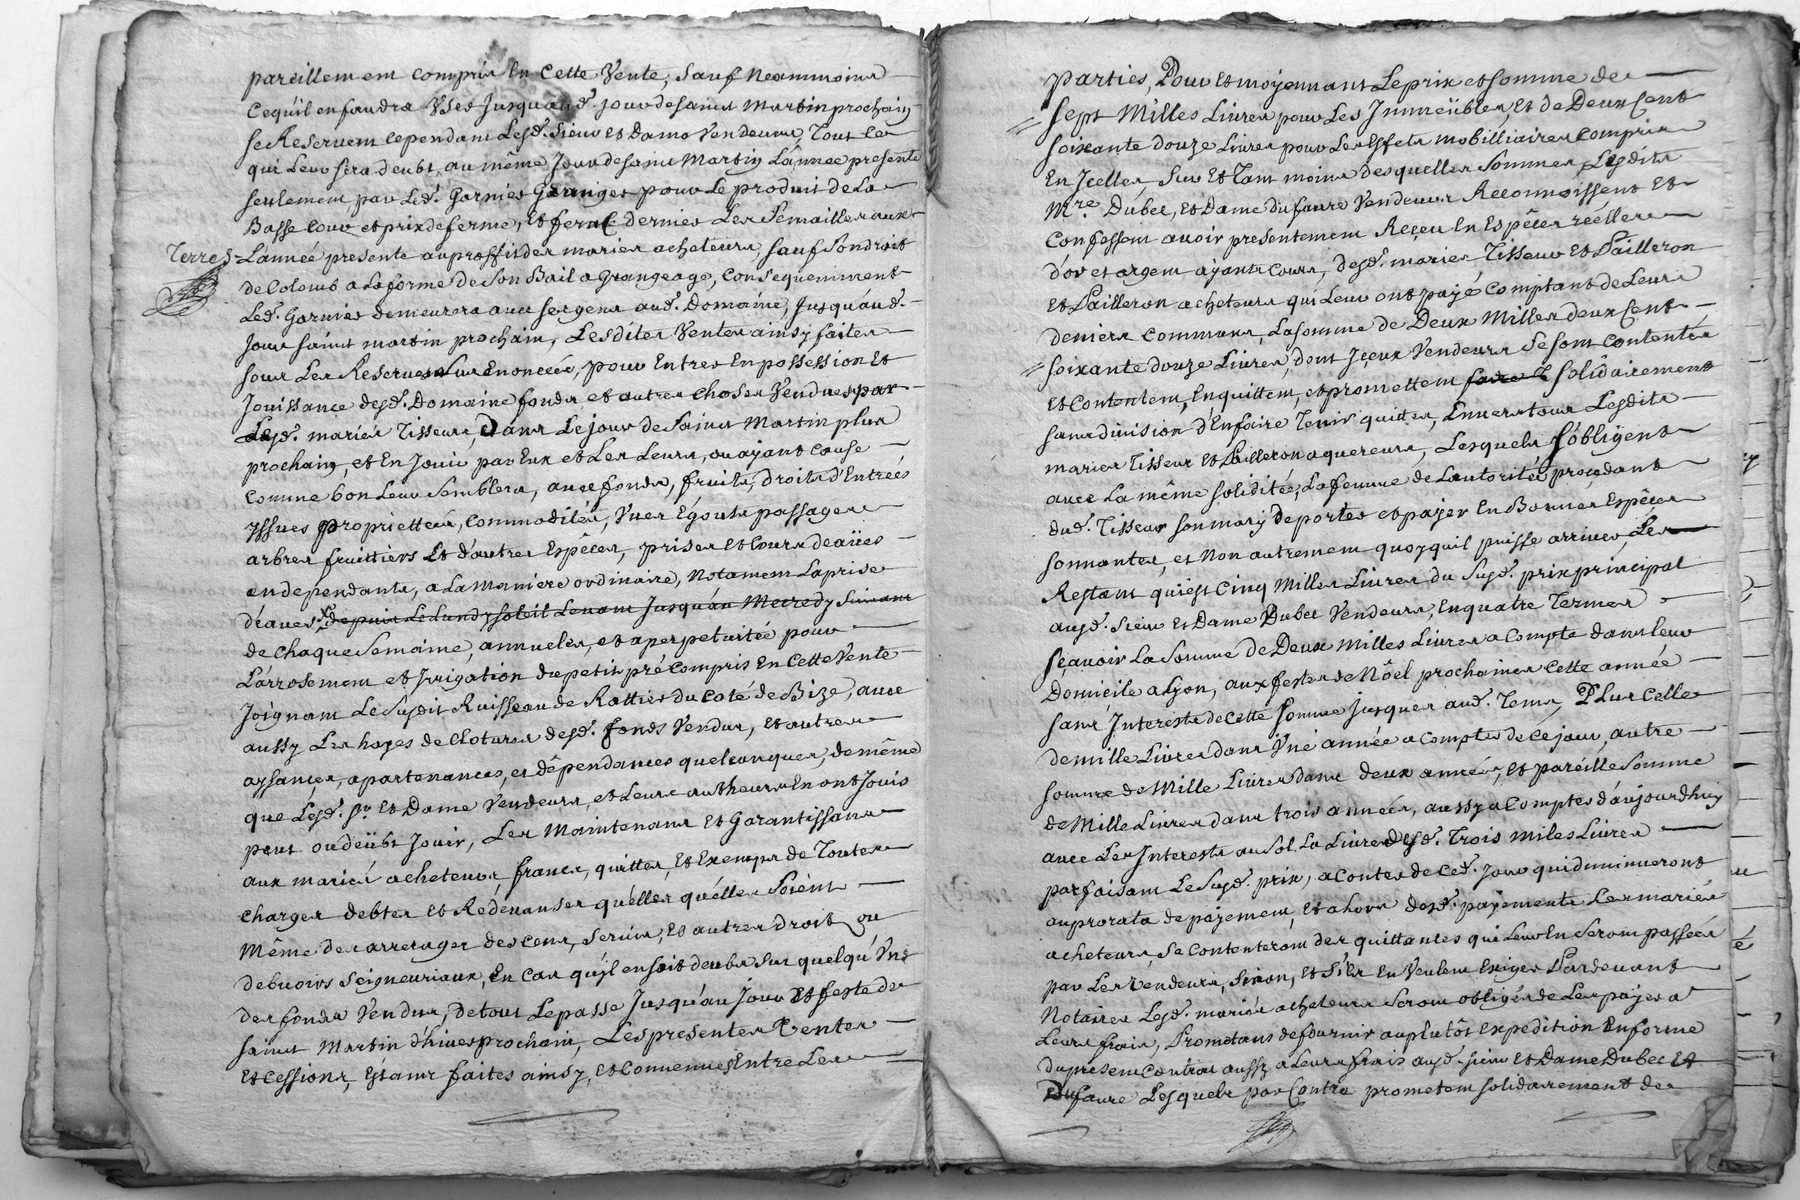 pareillement compris En Cette Vente, Sauf Neammoins
Cequ'il enfaudra User Jusquaud. jour de saint Martin prochain
se Reservent cependant Lesd. Sieur et Dame Vendeurs Tout ce
qui Leur sera deubt, au même Jour de saint Martin L'année presente
seulement, par Led. Garnier Granger pour Le produit de La
Basse cour et prix de ferme, Et fera dernier Les Semailles aux
Terres
L'année presente au proffit des maries acheteurs, sauf Son droit
de Colond a La forme de Son Bail a Grangeage, Consequemment
Led. Garnier demeurera avec ses gens aud. Domaine, Jusquaud.
Jour saint martin prochain, Lesdites Ventes ainsy faites
sous Les Reserves Sus Enoncées, pour Entrer En possession Et
Jouissance desd. Domaine fonds et autres Choses Vendues par
Lesd. mariés Tisseur, Dans Le jour de Saint Martin plus
prochain, et En Jouir par Eux et Les Leurs, ou ayant Cause
Comme bon Leur Semblera, avec fonds, fruits, droits d'Entrées
Yssues proprietteés, Commodités, Vues Egouts passages
arbres fruittiers Et d'autres Espêces, prises et Cours deaües
en dependants, a La maniere ordinaire, Notament La prise
d'eaues depuis Le Lundy soleil Levant Jusqu'au Mecredy Suivant
de Chaque Semaine, annuelles, et a perpetuitée pour
L'arrosement et Jrrigation du petit pré Compris En Cette Vente
Joignant Le Susdit Ruisseau de Rattier du Coté de Bize, avec
aussy Les hayes de Clotures desd. fonds Vendus, et autres
aysances, apartenances, et dêpendances quelconques, de même
que Lesd. Sr. Et Dame Vendeurs, et Leurs autheurs En ont Jouis
peut ou deübt Jouir, Les Maintenant Et Garantissant
aux mariés acheteurs francs, quittes, Et Exempts de Toutes
Charges debtes et Redevanses quélles quélles Soient
Même des arrerages des Cens, Servis, Et autres droit ou
debvoirs Seigneuriaux, En Cas qu'jl en soit deubs Sur quelqu'Uns
des fonds Vendus, de tout Le passé Jusqu'au Jour Et feste de
saint Martin d'hiver prochain, Les presentes Ventes
Et Cessions, Etant faites ainsy, et Convenues Entre Les
parties, Pour Et moyennant Le prix et somme de
Sept Milles Livres pour Les Jmmeübles, Et de Deux Cent
soixante douze Livres pour Les Effets mobilliaires Compris
En Jcelles, Sur Et Tant moins desquelles Sommes, Lesdits
Mre. Dubec, Et Dame Dufaure Vendeurs Reconnoissent Et
Confessent avoir presentement Reçeu En Espêces réelles
d'or et argent ayants Cours, desd. maries Tisseur et Pailleron
Et Pailleron acheteurs qui Leur ont payé Comptant de Leurs
deniers Communs, La somme de Deux Milles deux Cent
soixante douze Livres, dont Jçeux Vendeurs Se sont Contentés
et Contentent, En quittent, et promettent faire Solidairement
sans division d'En faire Tenir quittes, Envers tous Lesdits
maries Tisseur Et Pailleron aquereurs, Lesquels S'obligent
avec La même Soliditée, La femme de L'autorité procedant
dud. Tisseur son mary de porter et payer En Bonnes Espêces
sonnantes, et Non autrement quoy quil puisse arriver, Les
Restant qui est Cinq Milles Livres du Susd. prix principal
ausd. Sieur Et Dame Dubec Vendeurs, En quatre Termes
sçavoir La Somme de Deux Milles Livres a Compte dans Leur
Domicile a Lyon, aux festes de Nôël prochaines Cette année
sans Interests de Cette Somme jusques aud. Tems, Plus Celle
de mille Livres dans Une année a Compter de Ce jour, autre
somme de Mille Livres dans deux années, et pareille Somme
de Mille Livres dans trois années, aussy a Compter d'aujourdhuy
avec Les Interests au Sol La Livre Desd. Trois miles Livres
parfaisant Le Susd. prix, a Conter de Ced. Jour qui diminueront
au prorata de payement, et ahors desd. payements Les mariés
acheteurs, Se Contenteront des quittances qui Leur En Seront passées
par Les Vendeurs, Sinon, et S'ils En Veulent Exiger Pardevant
Notaires Lesd. mariés acheteurs Seront obligés de Les payer a
Leurs frais, Promettans de fournir au plutôt Expedition En forme
du present Contrat aussy a Leurs frais ausd. Sieur Et Dame Dubec Et
Dufaure Lesquels par Contre prometent solidairement de